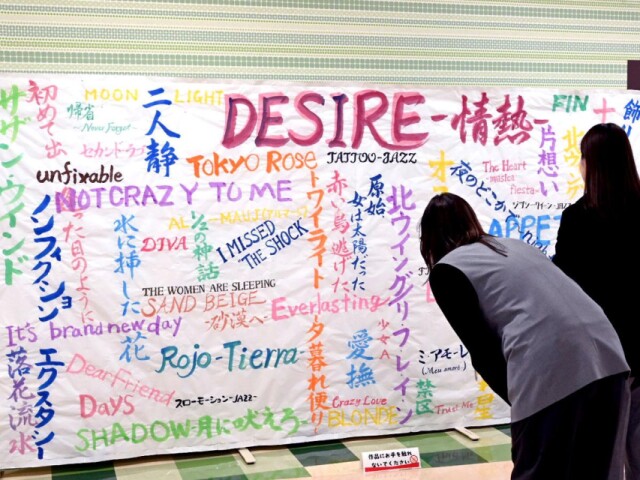 サザン・ウインド
初めて出
MOON LIGHT
帰省
Never Forget
セカンド・ラブ
unfixable
二人静
DESIRE-情熱-
FIN
十
飾り
TOKYO ROSE
TATTOO-JAZZ
NOT CRAZY TO ME
ノンフィクション
った日のように
水に挿した花
DIVA
1/2の神話
I MISSED "THE SHOCK"
トワイライト-夕暮れ便り-
赤い鳥逃げた
原始、女は太陽だった
北ウイング
リフレイン
夜のどこかで
The Heart
片想い
APPET
THE WOMEN ARE SLEEPING
SAND BEIGE
-砂漠へ-
Everlasting
少女A
It's brand new day
落花流水
エクスタシー
Dear Friend
Days
Rojo-Tierra-
愛撫
スローモーション-JAZZ-
SHADOW-月に吠えろ-
Crazy Love
BLONDE
ミ・アモーレ
(Meu amor é)
禁区
Trust Me
作品にお手を触れ
ないでください